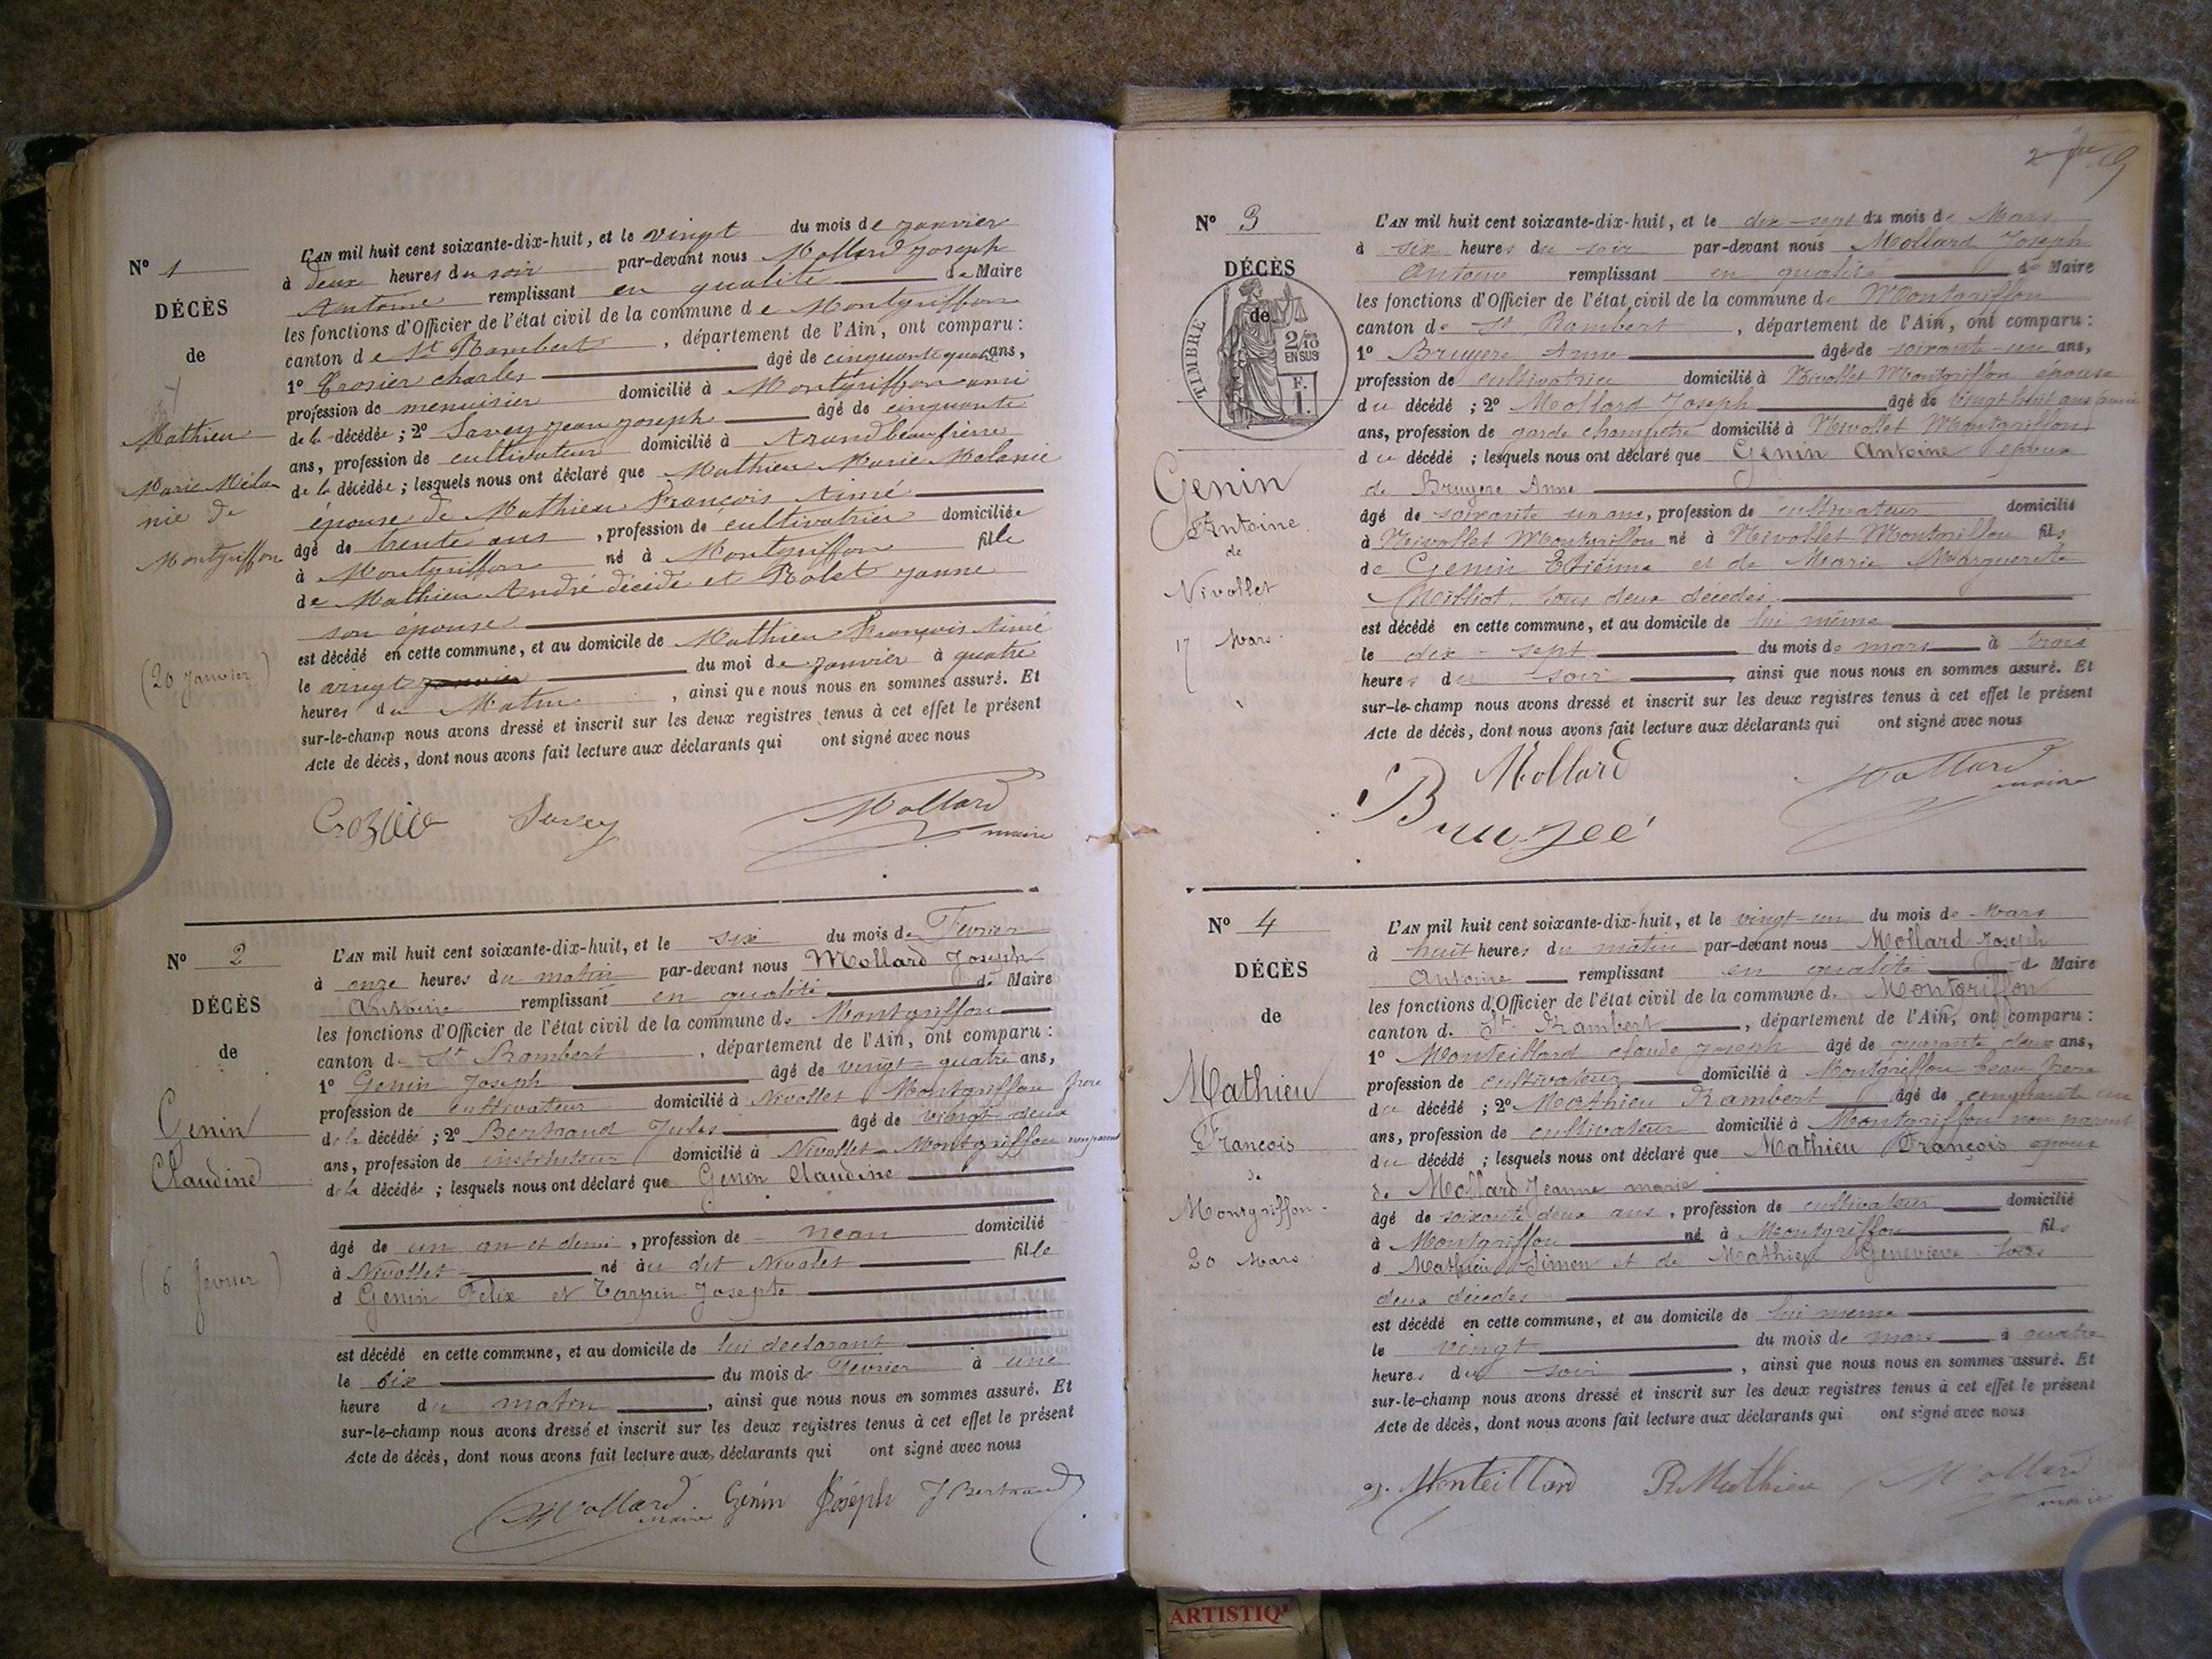 N° 1
DÉCÈS
de
Mathieu
Marie Méla
nie de
Montgriffon
(20 janvier)
L'AN mil huit cent soixante-dix-huit, et le vingt du mois de janvier
à deux heures du soir par-devant nous Mollard Joseph
Antoine remplissant en qualité de Maire
les fonctions d'Officier de l'état civil de la commune de Montgriffon
canton de St Rambert, département de l'Ain, ont comparu :
1° Crosier charles âgé de cinquante quatre ans,
profession de menuisier domicilié à Montgriffon ami
de la décédée ; 2° Savey jean joseph âgé de cinquante
ans, profession de cultivateur domicilié à Arand beau frère
de la décédée ; lesquels nous ont déclaré que Mathieu Marie Melanie
épouse de Mathieu François Aimé
âgé de trente ans, profession de cultivatrice domiciliée
à Montgriffon né à Montgriffon fille
de Mathieu André décédé et Rolet jeanne
son épouse
est décédé en cette commune, et au domicile de Mathieu François Aimé
le vingt janvier du moi de janvier à quatre
heures du Matin, ainsi que nous nous en sommes assuré. Et
sur-le-champ nous avons dressé et inscrit sur les deux registres tenus à cet effet le présent
Acte de décès, dont nous avons fait lecture aux déclarants qui ont signé avec nous
Crozier Savey Mollard
maire
N° 2
DÉCÈS
de
Genin
Claudine
(6 fevrier)
L'AN mil huit cent soixante-dix-huit, et le six du mois de Fevrier
à onze heures du matin par-devant nous Mollard Joseph
Antoine remplissant en qualité de Maire
les fonctions d'Officier de l'état civil de la commune de Montgriffon
canton de St Rambert, département de l'Ain, ont comparu :
1° Genin Joseph âgé de vingt-quatre ans,
profession de cultivateur domicilié à Nivollet Montgriffon frère
de la décédée ; 2° Bertrand Jules âgé de vingt deux
ans, profession de instituteur domicilié à Nivollet-Montgriffon non parent
de la décédée ; lesquels nous ont déclaré que Genin Claudine
âgé de un an et demi, profession de neant domicilié
à Nivollet né au dit Nivolet fille
d Genin Felix et Tarpin Josepte
est décédé en cette commune, et au domicile de lui declarant
le six du mois de Fevrier à une
heure du matin, ainsi que nous nous en sommes assuré. Et
sur-le-champ nous avons dressé et inscrit sur les deux registres tenus à cet effet le présent
Acte de décès, dont nous avons fait lecture aux déclarants qui ont signé avec nous
Mollard maire Genin Joséph J Bertrand
N° 3
DÉCÈS
de
TIMBRE
2/10
EN SUS
F.
1.
Genin
Antoine
de
Nivollet
17 Mars
L'AN mil huit cent soixante-dix-huit, et le dix-sept du mois de Mars
à six heures du soir par-devant nous Mollard Joseph
Antoine remplissant en qualité de Maire
les fonctions d'Officier de l'état civil de la commune de Montgriffon
canton de St Rambert, département de l'Ain, ont comparu :
1° Bruyere Anne âgé de soixante-un ans,
profession de cultivatrice domicilié à Nivollet Montgriffon épouse
du décédé ; 2° Mollard Joseph âgé de vingt huit ans
ans, profession de garde champetre domicilié à Nivollet Montgriffon
du décédé ; lesquels nous ont déclaré que Genin Antoine epoux
de Bruyere Anne
âgé de soixante un ans, profession de cultivateur domicilié
à Nivollet Montgriffon né à Nivollet Montgriffon fils
de Genin Etienne et de Marie Marguerite
Milliot tous deux décédés
est décédé en cette commune, et au domicile de lui même
le dix-sept du mois de mars à trois
heures du soir, ainsi que nous nous en sommes assuré. Et
sur-le-champ nous avons dressé et inscrit sur les deux registres tenus à cet effet le présent
Acte de décès, dont nous avons fait lecture aux déclarants qui ont signé avec nous
Mollard Mollard
maire
N° 4
DÉCÈS
de
Mathieu
François
de
Montgriffon
20 Mars
L'AN mil huit cent soixante-dix-huit, et le vingt-un du mois de Mars
à huit heures du matin par-devant nous Mollard Joseph
Antoine remplissant en qualité de Maire
les fonctions d'Officier de l'état civil de la commune d. Montgriffon
canton d. St Rambert, département de l'Ain, ont comparu :
1° Monteillard claude joseph âgé de quarante deux ans,
profession de cultivateur domicilié à Montgriffon beau frere
du décédé ; 2° Mathieu Rambert âgé de cinquante un
ans, profession de cultivateur domicilié à Montgriffon non parent
du décédé ; lesquels nous ont déclaré que Mathieu François epoux
de Mollard Jeanne marie
âgé de soixante deux ans, profession de cultivateur domicilié
à Montgriffon né à Montgriffon fils
d Mathieu Simon et de Mathieu Genevieve tous
deux décédés
est décédé en cette commune, et au domicile de lui meme
le vingt du mois de mars à quatre
heures du soir, ainsi que nous nous en sommes assuré. Et
sur-le-champ nous avons dressé et inscrit sur les deux registres tenus à cet effet le présent
Acte de décès, dont nous avons fait lecture aux déclarants qui ont signé avec nous
Monteillard R Mathieu Mollard
maire
ARTISTIQ